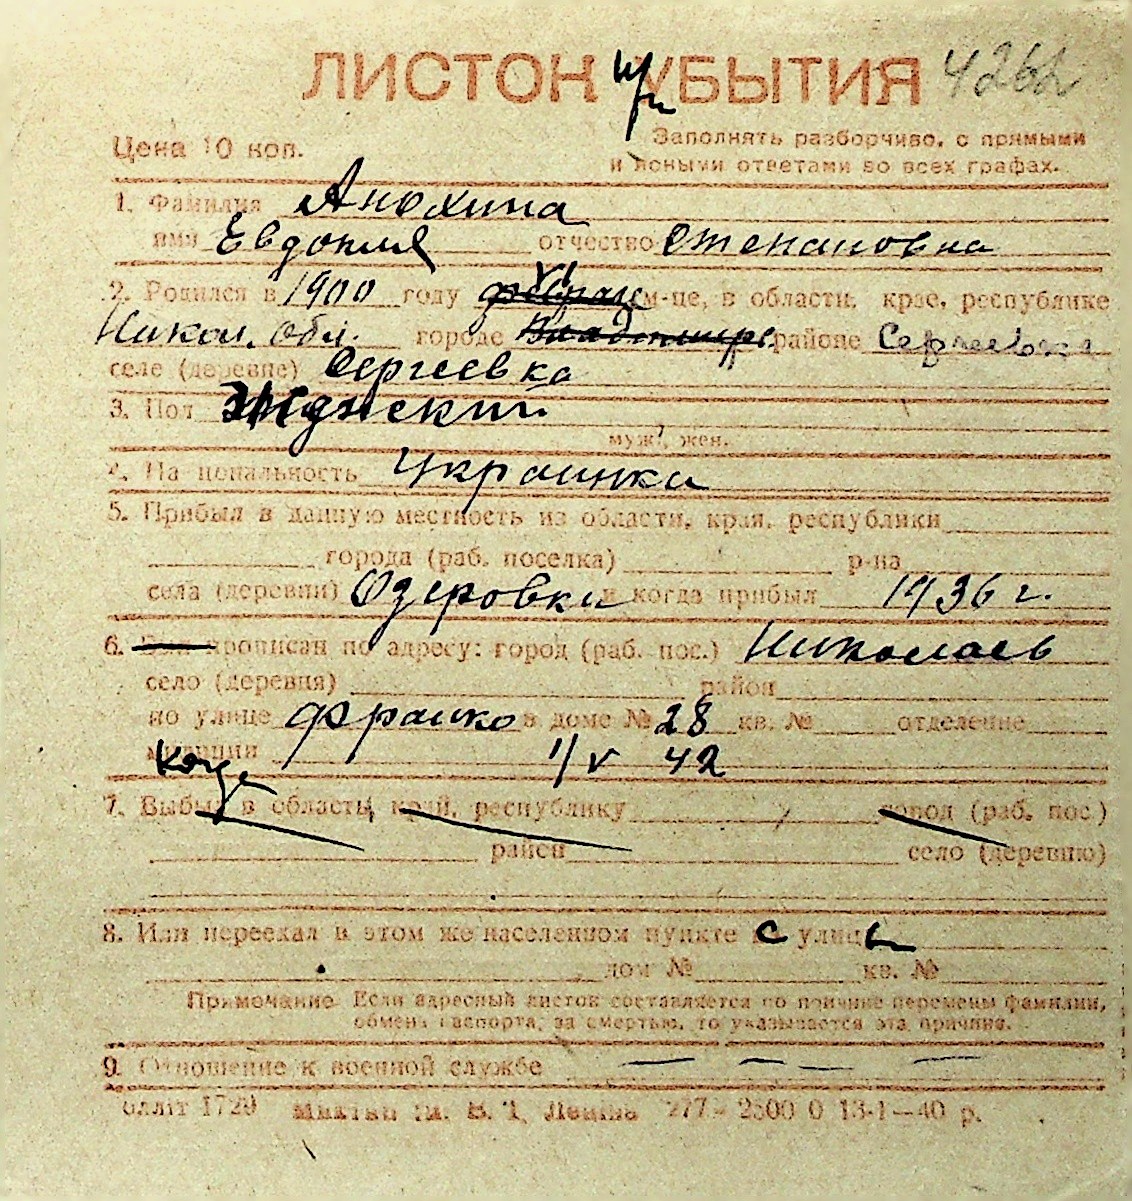 ЛИСТОК УБЫТИЯ 4262
Цена 10 коп. Заполнять разборчиво, с прямыми
и ясными ответами во всех графах.
1. Фамилия Анохина
имя Евдокия отчество Степановна
2. Родился в 1900 году VI м-це, в области, крае, республике
Никол. обл. городе районе Сергеевка
селе (деревне) Сергеевка
3. Пол женский
муж., жен.
4. Национальность Украинка
5. Прибыл в данную местность из области, края, республики
города (раб. поселка) р-на
села (деревни) Озеровки и когда прибыл 1936 г.
6. прописан по адресу: город (раб. пос.) Николаев
село (деревня) район
по улице Франко в доме № 28 кв. № отделение
милиции 1/V 42
Когда
7. Выбыл в область, край, республику город (раб. пос.)
район село (деревню)
8. Или переехал в этом же населенном пункте с улицы
дом № кв. №
Примечание Если адресный листок составляется по причине перемены фамилии,
обмена паспорта, за смертью, то указывается эта причина.
9. Отношение к военной службе — — — —
1729 Ленина 277 – 2500 0 13-1—40 р.